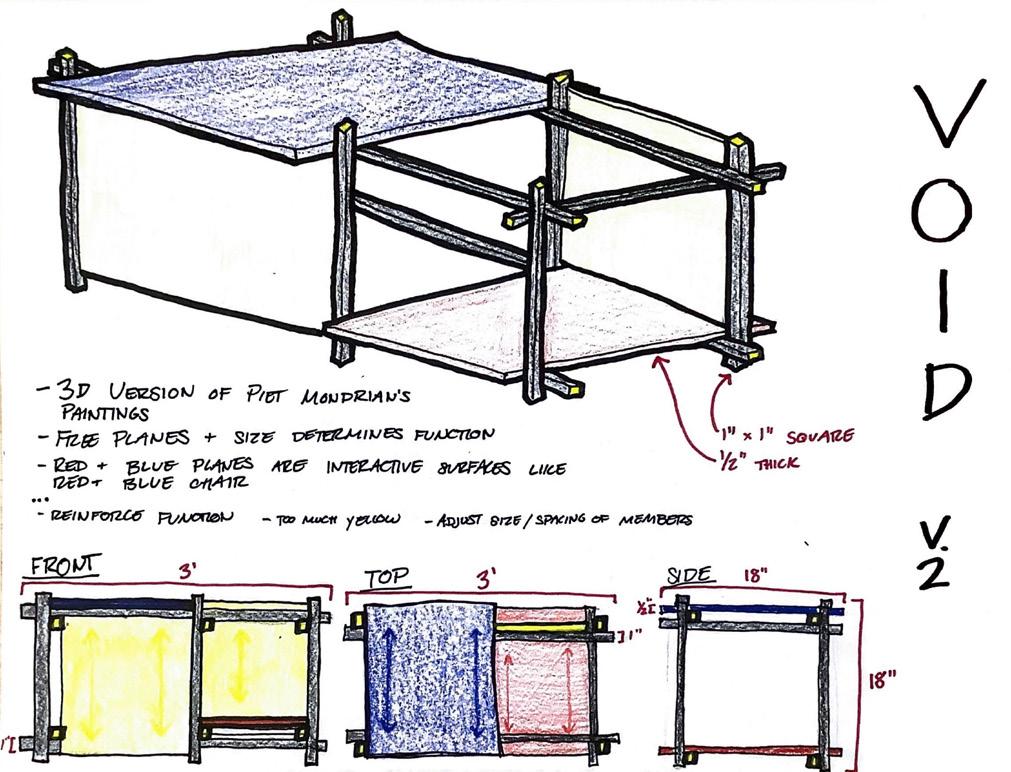 VOID
V.
2
- 3D VERSION OF PIET MONDRIAN'S
PAINTINGS
- FREE PLANES + SIZE DETERMINES FUNCTION
- RED + BLUE PLANES ARE INTERACTIVE SURFACES LIKE
RED + BLUE CHAIR
...
- REINFORCE FUNCTION - TOO MUCH YELLOW - ADJUST SIZE/SPACING OF MEMBERS
1" x 1" SQUARE
1/2" THICK
FRONT
3'
1"
TOP
3'
1"
SIDE
18"
1/2"
18"